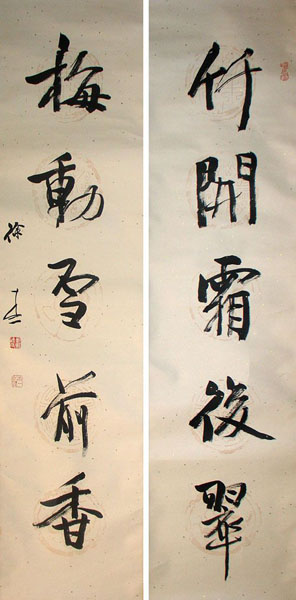 竹開霜後翠
梅動雪前香
徐